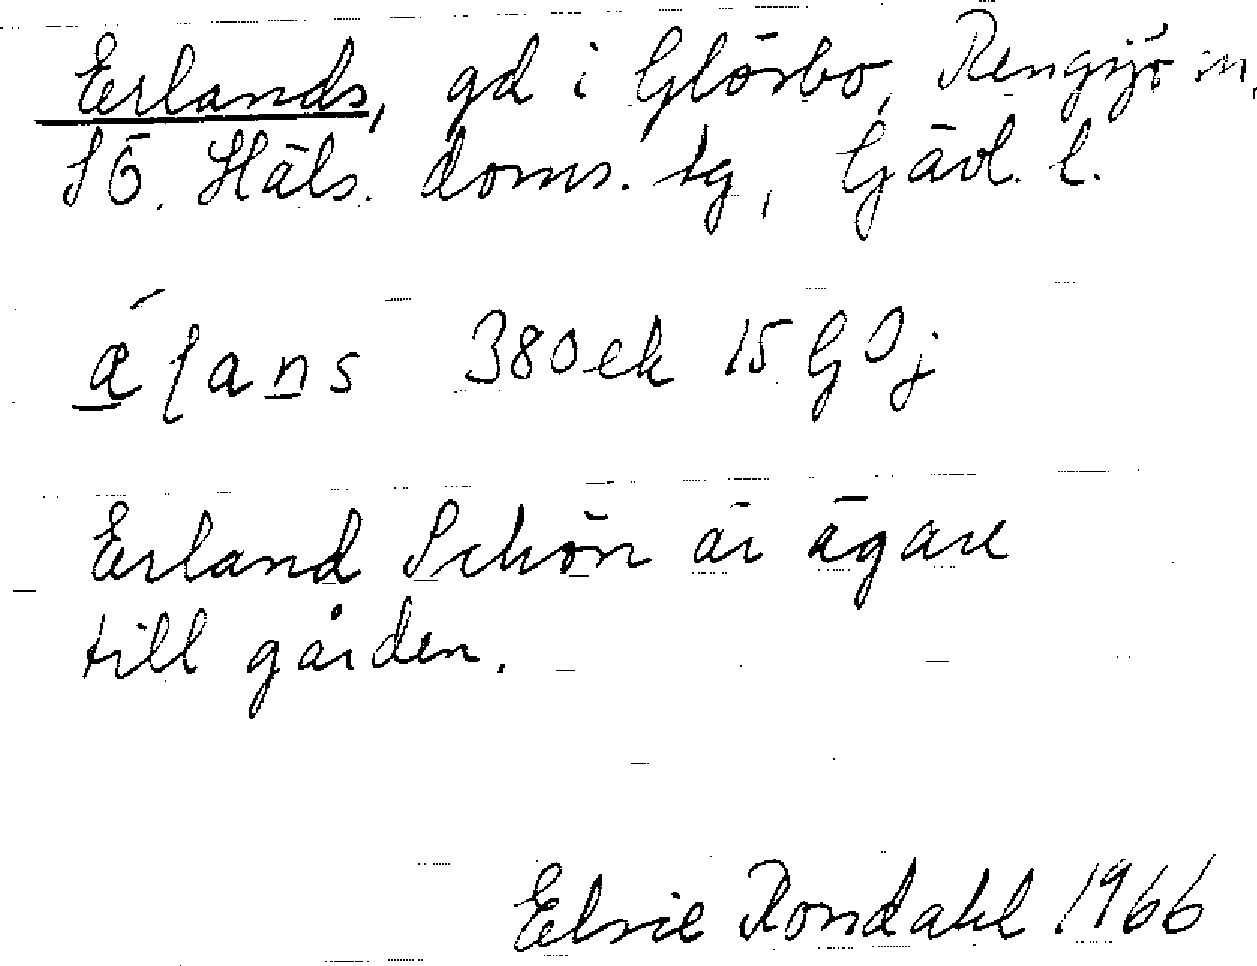 Erlands, gd i Glösbo, Rengsjö sn,
SÖ. Häls. doms. tg, Gävl. l.
380 ek 15 G 0 j
Erland Schön är ägare
till gården.
Elsie Rondahl 1966